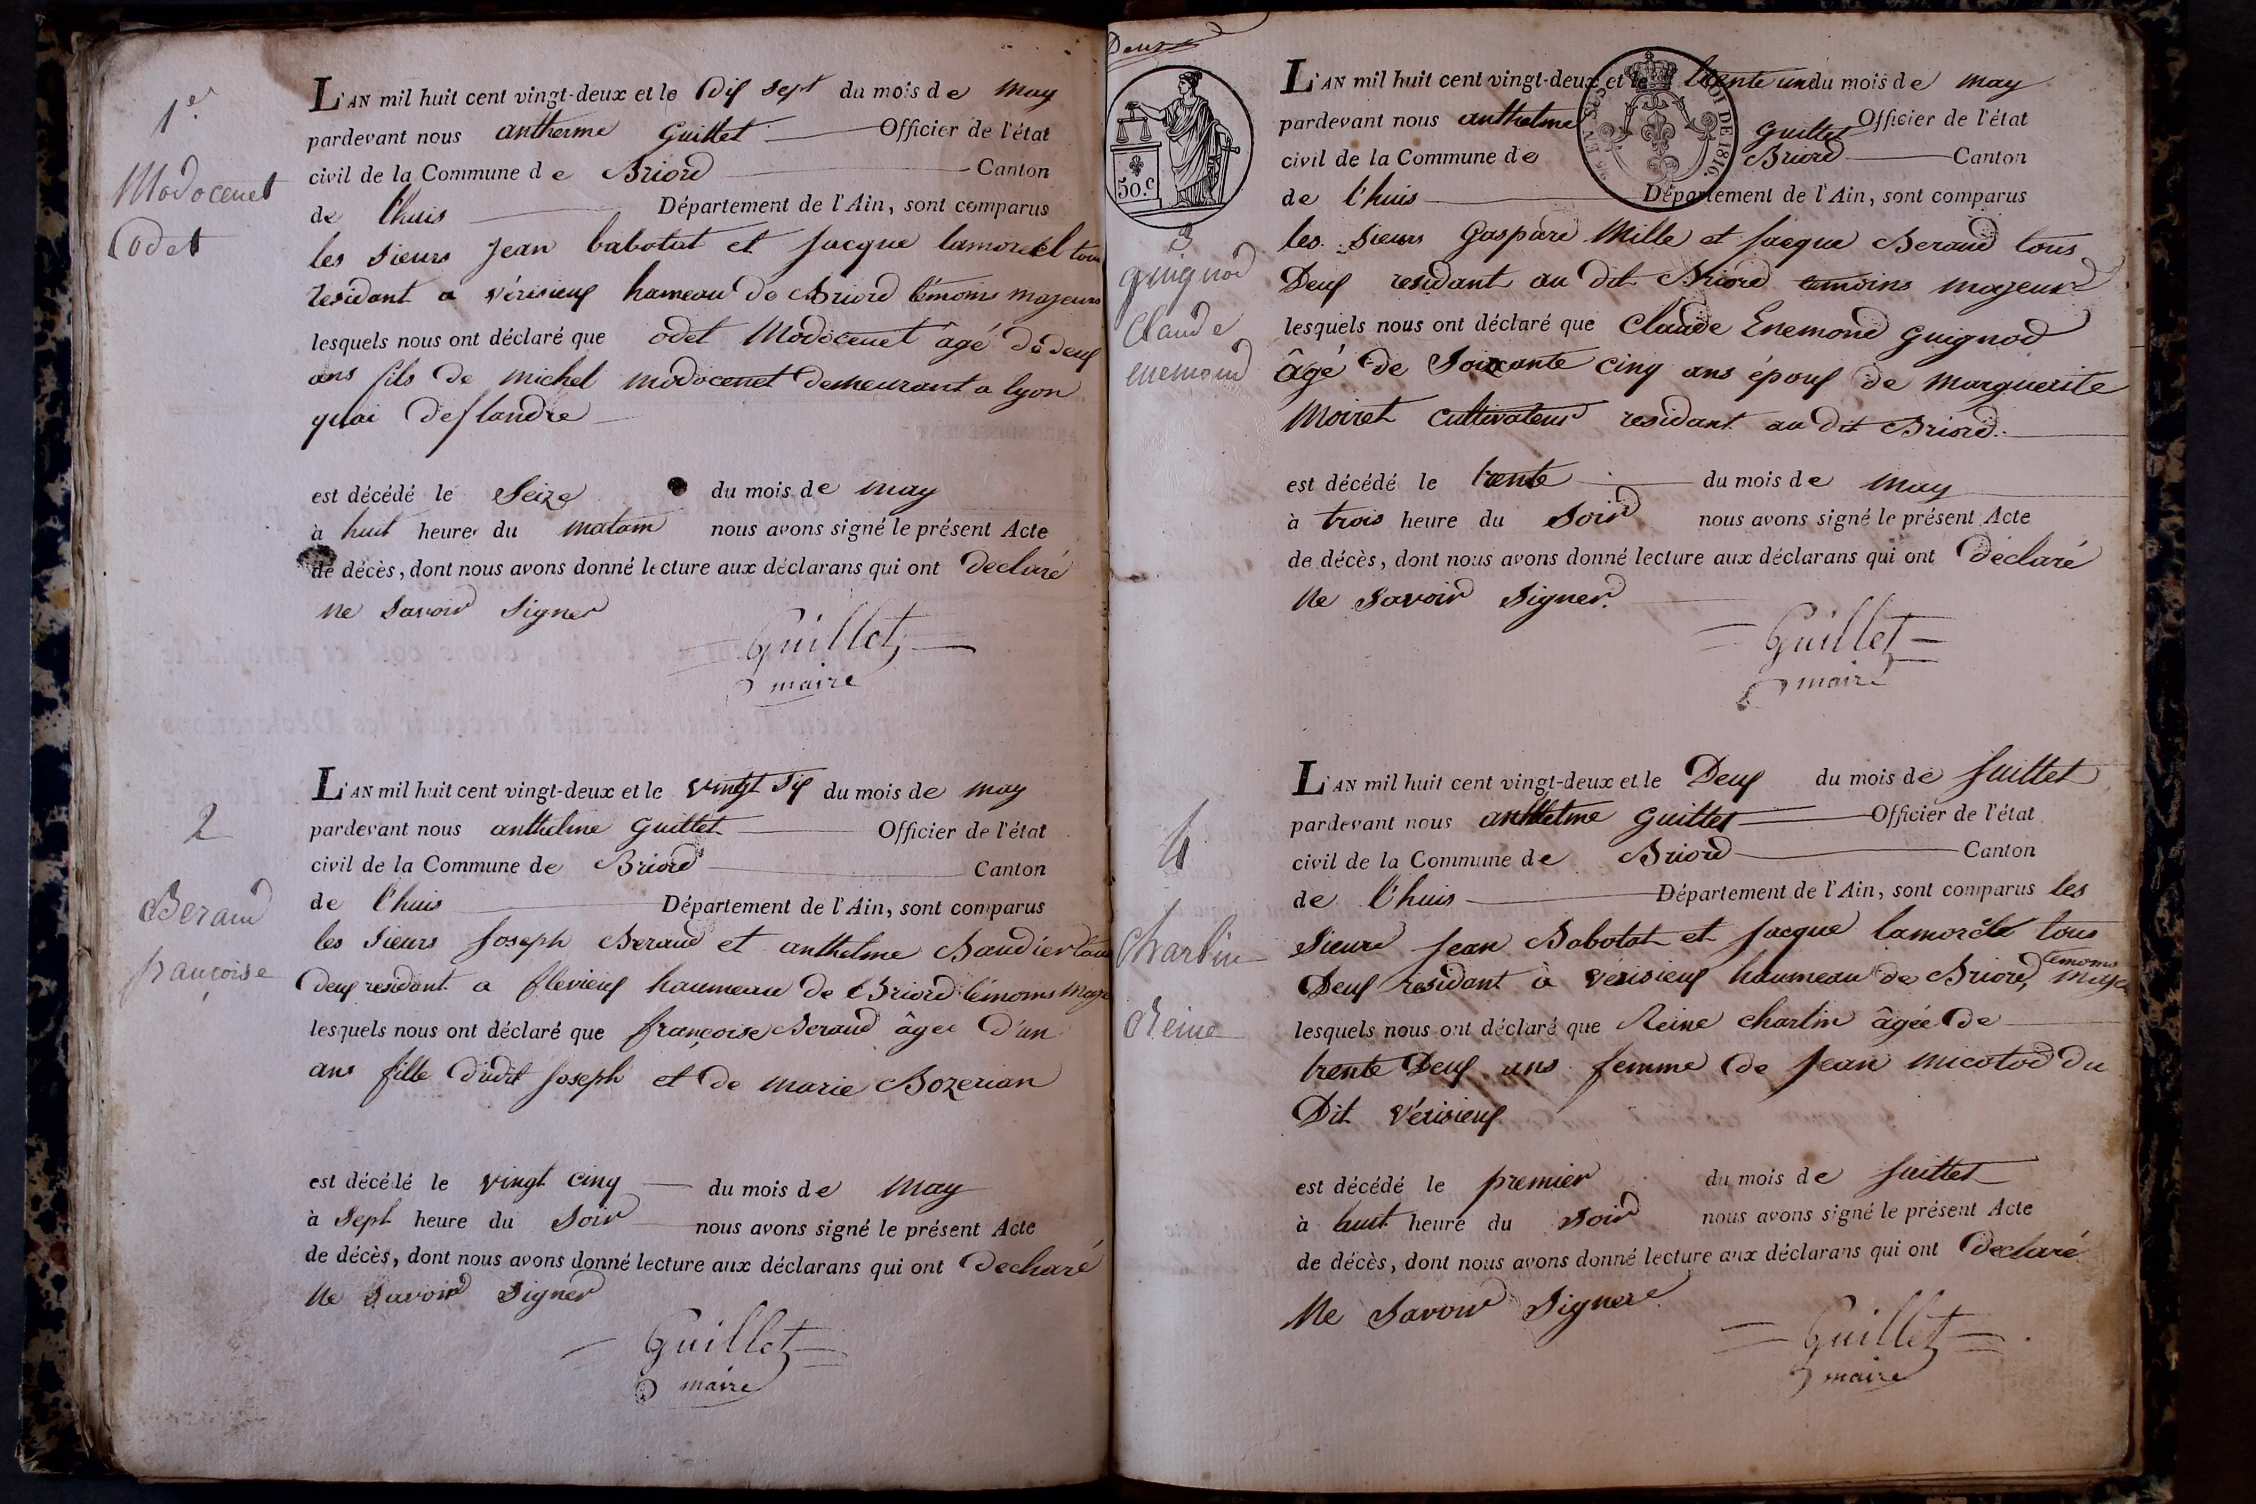 1er
Modocenet
Odet
L'AN mil huit cent vingt-deux et le Dix sept du mois de may
pardevant nous antherme Guillet Officier de l'état
civil de la Commune de Briord Canton
de l'huis Département de l'Ain, sont comparus
les sieurs Jean babotat et Jacque lamorest tous
residant a vérisieux hameau de Briord témoins majeurs
lesquels nous ont déclaré que odet Modocenet âgé de deux
ans fils de michel modocenet demeurant a lyon
quai de flandre
est décédé le Seize du mois de may
à huit heure du matain nous avons signé le présent Acte
de décès, dont nous avons donné lecture aux déclarans qui ont declaré
ne savoir signer
Guillet
maire
2
Beraud
françoise
L'AN mil huit cent vingt-deux et le vingt six du mois de may
pardevant nous anthelme Guillet Officier de l'état
civil de la Commune de Briord Canton
de l'huis Département de l'Ain, sont comparus
les sieurs Joseph Beraud et anthelme Baudier tous
deux residant a flevieux haumeau de Briord témoins maje
lesquels nous ont déclaré que françoise Beraud âgée d'un
ans fille dudit Joseph et de marie Bozerian
est décédé le vingt cinq du mois de may
à sept heure du soir nous avons signé le présent Acte
de décès, dont nous avons donné lecture aux déclarans qui ont declaré
ne savoir signer
Guillet
maire
Deux
50.c
LOI DE 1816
3
guignod
Claude
enemond
L'AN mil huit cent vingt-deux et le trente un du mois de may
pardevant nous anthelme Guillet Officier de l'état
civil de la Commune de Briord Canton
de l'huis Département de l'Ain, sont comparus
les sieurs Gaspard Mille et Jacque Beraud tous
Deux residant au dit Briord temoins majeurs
lesquels nous ont déclaré que Claude Enemond guignod
âgé de Soixante cinq ans époux de marguerite
Moiret cultivateur residant au dit Briord
est décédé le trente du mois de may
à trois heure du soir nous avons signé le présent Acte
de décès, dont nous avons donné lecture aux déclarans qui ont déclaré
Ne savoir signer
Guillet
maire
4
Charlin
Reine
L'AN mil huit cent vingt-deux et le Deux du mois de Juillet
pardevant nous anthelme Guillet Officier de l'état
civil de la Commune de Briord Canton
de l'huis Département de l'Ain, sont comparus les
sieurs Jean Babotat et Jacque lamorèle tous
Deux residant à vérisieux haumeau de Briord, témoins maje
lesquels nous ont déclaré que Reine charlin âgée de
trente Deux ans femme de Jean micolod du
Dit vérisieux
est décédé le premier du mois de Juillet
à huit heure du soir nous avons signé le présent Acte
de décès, dont nous avons donné lecture aux déclarans qui ont declaré
Ne savoir signer
Guillet
maire